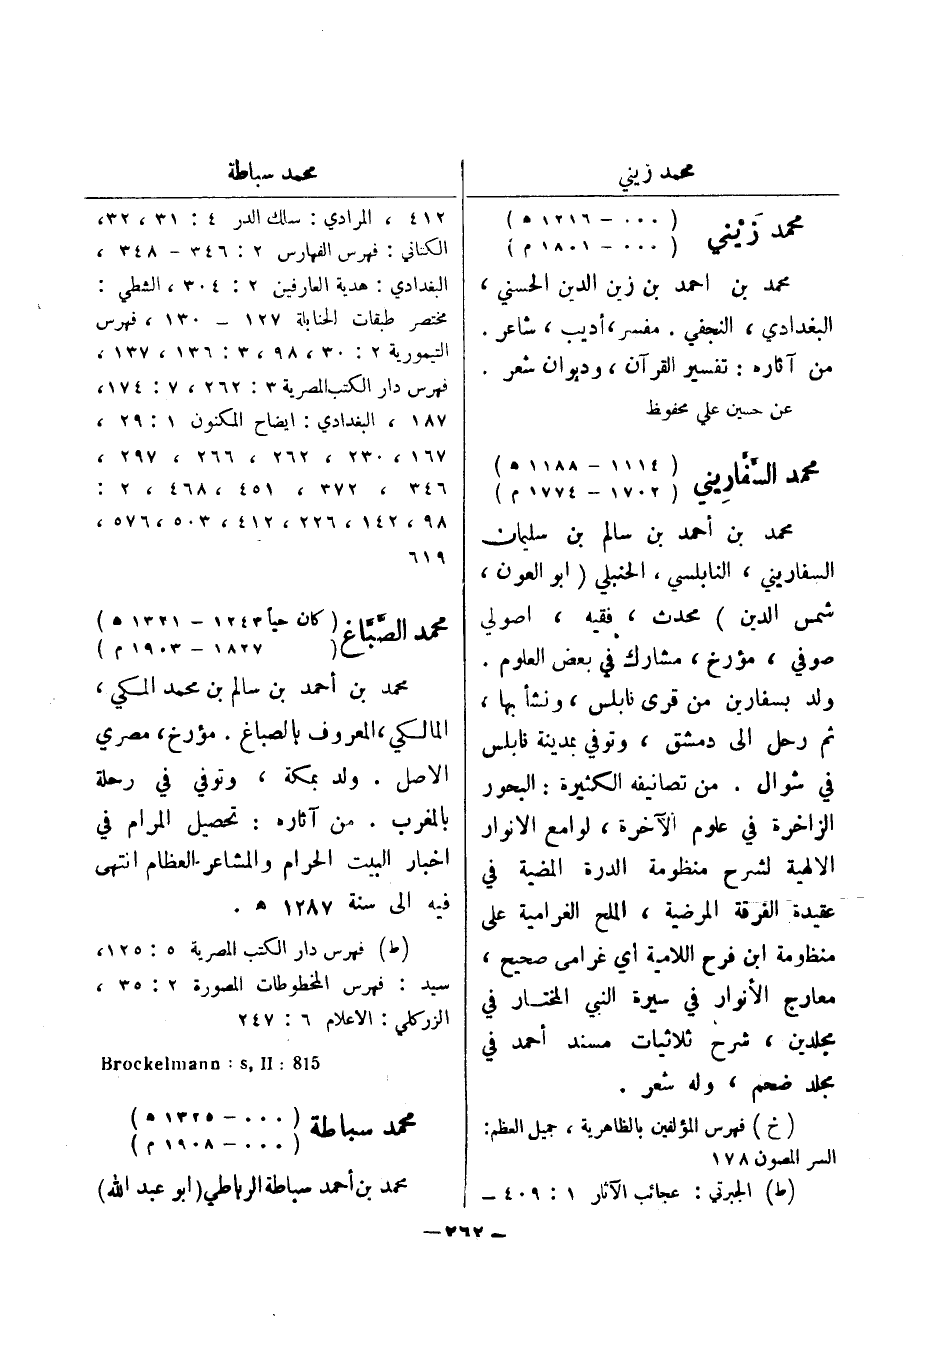 محمد زيني
محمد زَيْني
( ٠٠٠ – ١٢١٦ ه )
( ٠٠٠ – ١٨٠١ م )
محمد بن احمد بن زين الدين الحسني ،
البغدادي ، النجفي . مفسر ، أديب ، شاعر .
من آثاره : تفسير القرآن ، وديوان شعر .
عن حسين علي محفوظ
محمد السَّفّاريني
( ١١١٤ – ١١٨٨ ه )
( ١٧٠٢ – ١٧٧٤ م )
محمد بن أحمد بن سالم بن سليمان
السفاريني ، النابلسي ، الحنبلي ( ابو العون ،
شمس الدين ) محدث ، فقيه ، اصولي
صوفي ، مؤرخ ، مشارك في بعض العلوم .
ولد بسفارين من قرى نابلس ، ونشأ بها ،
ثم رحل الى دمشق ، وتوفي بمدينة نابلس
في شوال . من تصانيفه الكثيرة : البحور
الزاخرة في علوم الآخرة ، لوامع الانوار
الالهية لشرح منظومة الدرة المضية في
عقيدة الفرقة المرضية ، الملح الغرامية على
منظومة ابن فرح اللامية أي غرامى صحيح ،
معارج الأنوار في سيرة النبي المختار في
مجلدين ، شرح ثلاثيات مسند أحمد في
مجلد ضخم ، وله شعر .
( خ ) فهرس المؤلفين بالظاهرية ، جميل العظم :
السر المصون ١٧٨
(ط) الجبرتي : عجائب الآثار ١ : ٤٠٩ –
محمد سباطة
٤١٢ ، المرادي : سلك الدر ٤ : ٣١ ، ٣٢ ،
الكتاني : فهرس الفهارس ٢ : ٣٤٦ – ٣٤٨ ،
البغدادي : هدية العارفين ٢ : ٣٠٤ ، الشطي :
مختصر طبقات الحنابلة ١٢٧ – ١٣٠ ، فهرس
التيمورية ٢ : ٣٠ ، ٩٨ ، ٣ : ١٣٦ ، ١٣٧ ،
فهرس دار الكتب المصرية ٣ : ٢٦٢ ، ٧ : ١٧٤ ،
١٨٧ ، البغدادي : ايضاح المكنون ١ : ٢٩ ،
١٦٧ ، ٢٣٠ ، ٢٦٢ ، ٢٦٦ ، ٢٩٧ ،
٣٤٦ ، ٣٧٢ ، ٤٥١ ، ٤٦٨ ، ٢ :
٩٨ ، ١٤٢ ، ٢٢٦ ، ٤١٢ ، ٥٠٣ ، ٥٧٦ ،
٦١٩
محمد الصَّبّاغ
( كان حياً ١٢٤٣ – ١٣٢١ ه )
( ١٨٢٧ – ١٩٠٣ م )
محمد بن أحمد بن سالم بن محمد المكي ،
المالكي ، المعروف بالصباغ . مؤرخ ، مصري
الاصل . ولد بمكة ، وتوفي في رحلة
بالمغرب . من آثاره : تحصيل المرام في
اخبار البيت الحرام والمشاعر العظام انتهى
فيه الى سنة ١٢٨٧ ه .
(ط) فهرس دار الكتب المصرية ٥ : ١٢٥ ،
سيد : فهرس المخطوطات المصورة ٢ : ٣٥ ،
الزركلي : الاعلام ٦ : ٢٤٧
Brockelmann : s, II : 815
محمد سباطة
( ٠٠٠ – ١٣٢٥ ه )
( ٠٠٠ – ١٩٠٨ م )
محمد بن أحمد سباطة الرباطي ( ابو عبد الله )
– ٢٦٢ –